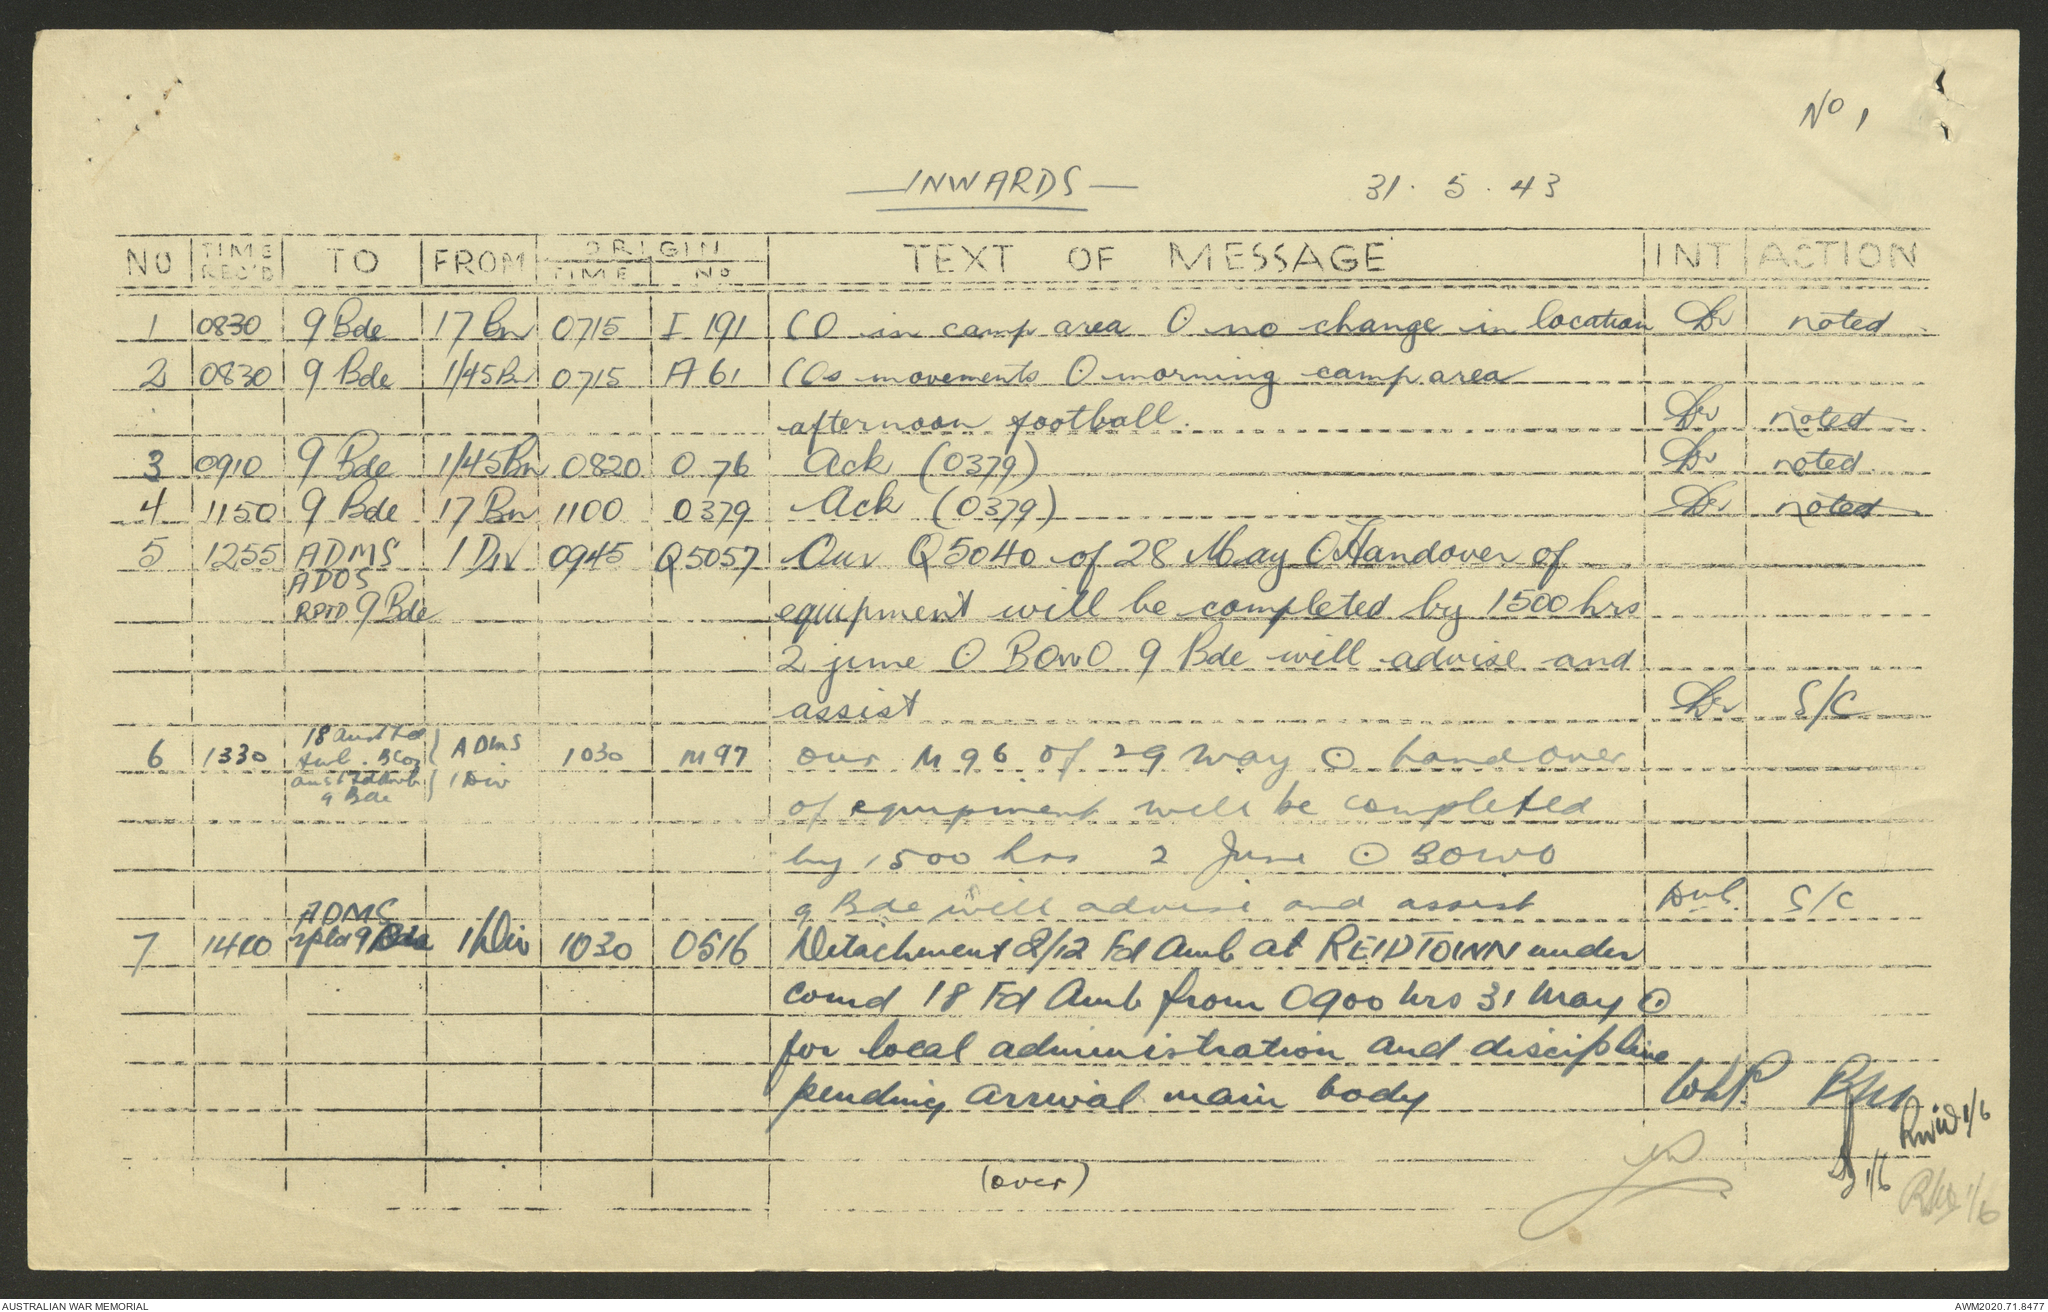 No 1
INWARDS 31. 5. 43
NO TIME REC'D TO FROM ORIGIN TIME No TEXT OF MESSAGE INT ACTION
1 0830 9 Bde 17 Bn 0715 I 191 CO in camp area O no change in location noted
2 0830 9 Bde 1/45 Bn 0715 A 61 COs movements O morning camp area
afternoon football. noted
3 0910 9 Bde 1/45 Bn 0820 O 76 Ack (0379) noted
4 1150 9 Bde 17 Bn 1100 0379 Ack (0379) noted
5 1255 ADMS 1 Div 0945 Q5057 Our Q5040 of 28 May O Handover of
ADOS
RPTD 9 Bde equipment will be completed by 1500 hrs
2 june O BOWO 9 Bde will advise and
assist S/C
6 1330 18 Aust Fd Amb. ADMS 1030 M97 our M96 of 29 may ⊙ handover
Aust Fd Amb 1 Div
9 Bde
of equipment will be completed
by 1500 hrs 2 June ⊙ BOWO
9 Bde will advise and assist S/C
ADMS
7 1400 rptd 9 Bde 1 Div 1030 0516 Detachment 2/12 Fd Amb at REIDTOWN under
comd 18 Fd Amb from 0900 hrs 31 May ⊙
for local administration and discipline
pending arrival main body
1/6
(over) 1/6
1/6
AUSTRALIAN WAR MEMORIAL AWM2020.71.8477